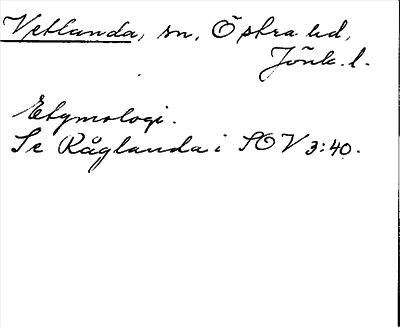 Vetlanda, sn, Östra hd,
Jönk. l.
Etymologi.
Se Råglanda i SOV 3:40.